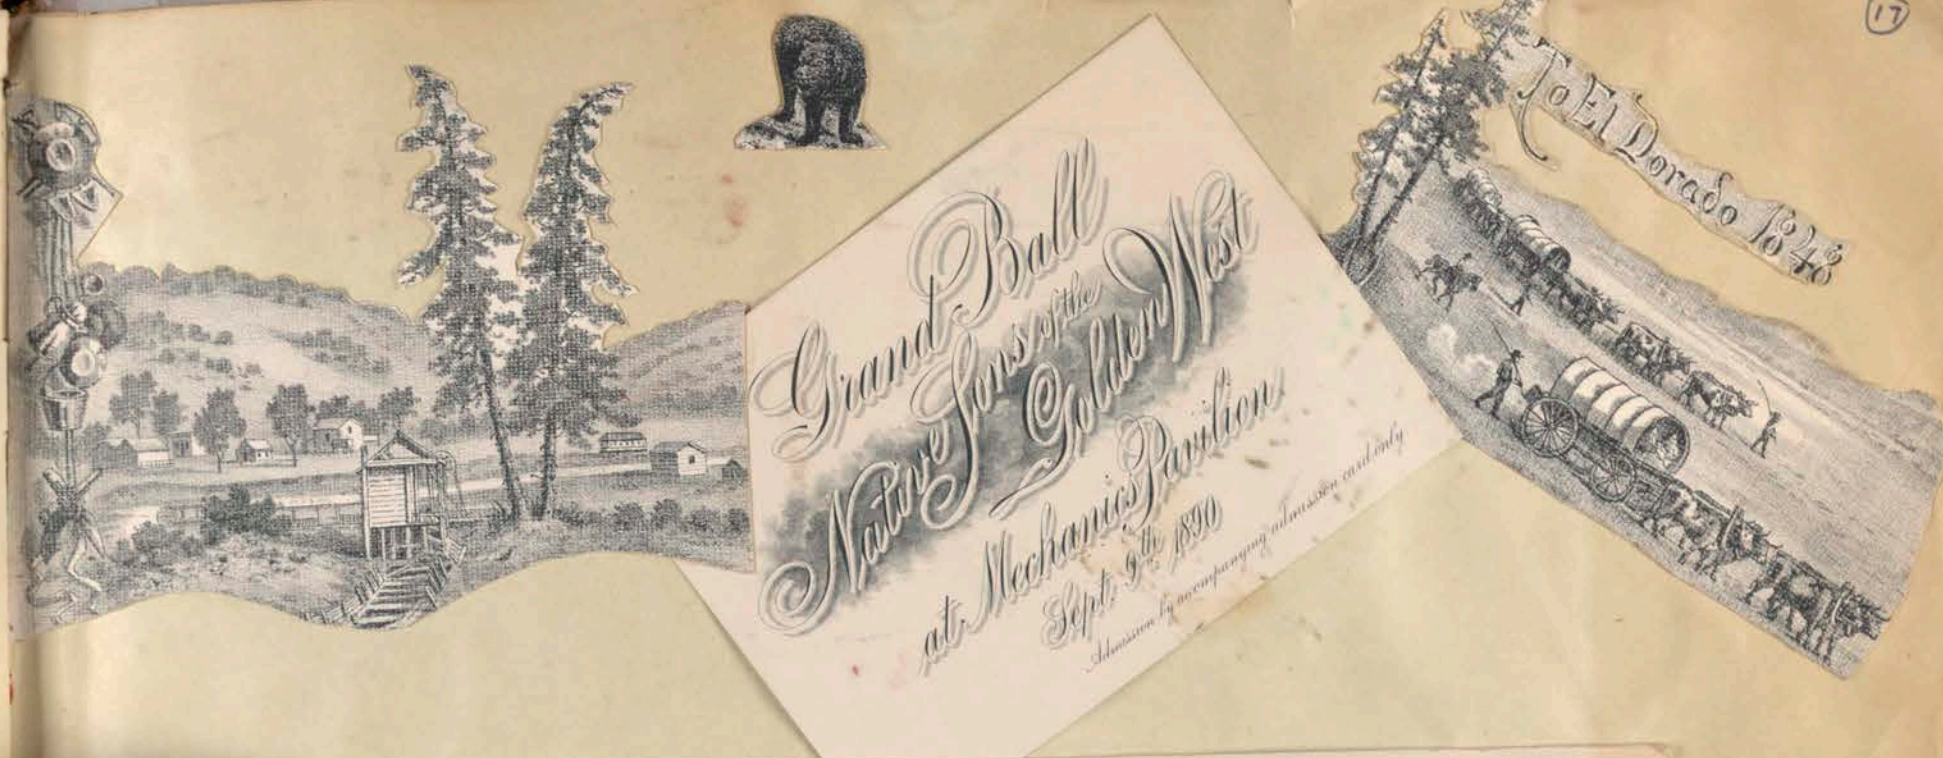 17
Grand Ball
Native Sons of the
Golden West
at Mechanics' Pavilion
Sept. 9th 1890
Admission by accompanying admission card only
To El Dorado 1848